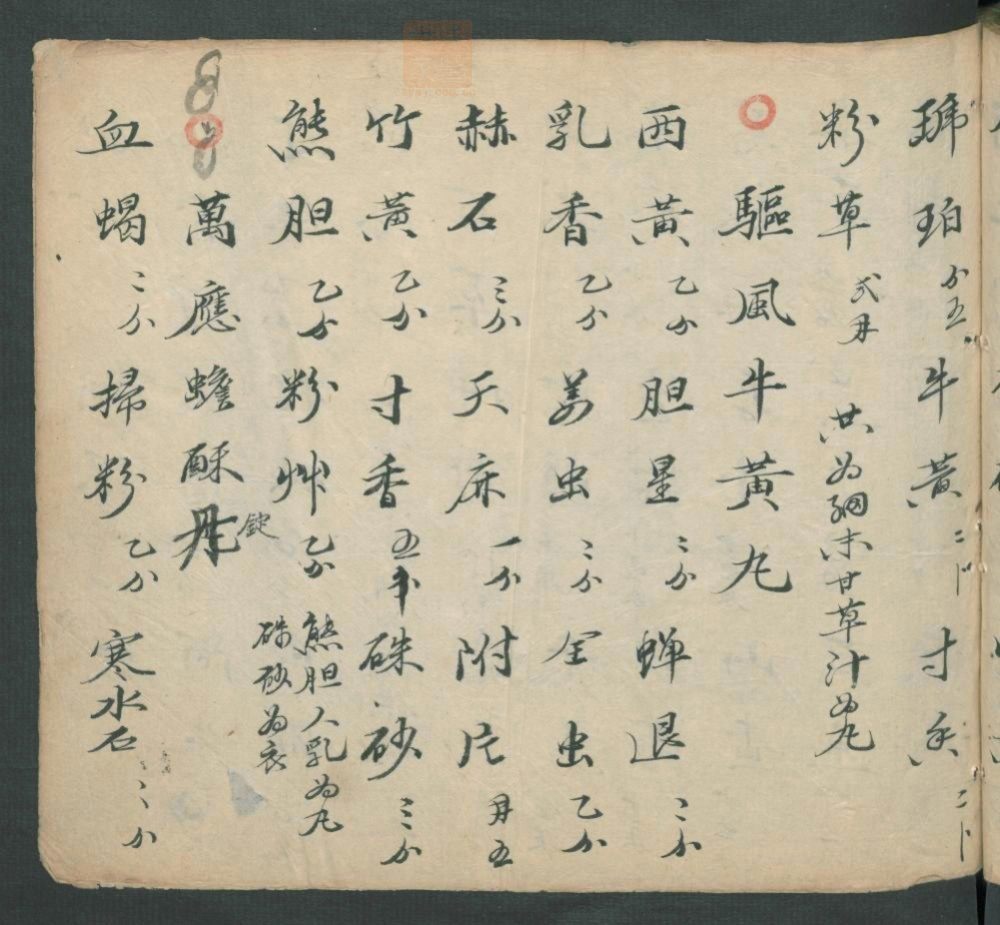 琥珀 分五 牛黃 二卜 寸香 二卜
粉草 弍月 共為細末甘草汁為丸
驅風牛黃丸
西黃 乙分 胆星 三分 蝉退 二分
乳香 乙分 姜虫 三分 全虫 乙分
赫石 三分 天麻 一分 附片 月五
竹黃 乙分 寸香 五卜 硃砂 三分
熊胆 乙分 粉艸 乙分 熊胆人乳為丸
硃砂為衣
萬應蟾酥丹 錠
血蝎 二分 掃粉 乙分 寒水石 二分